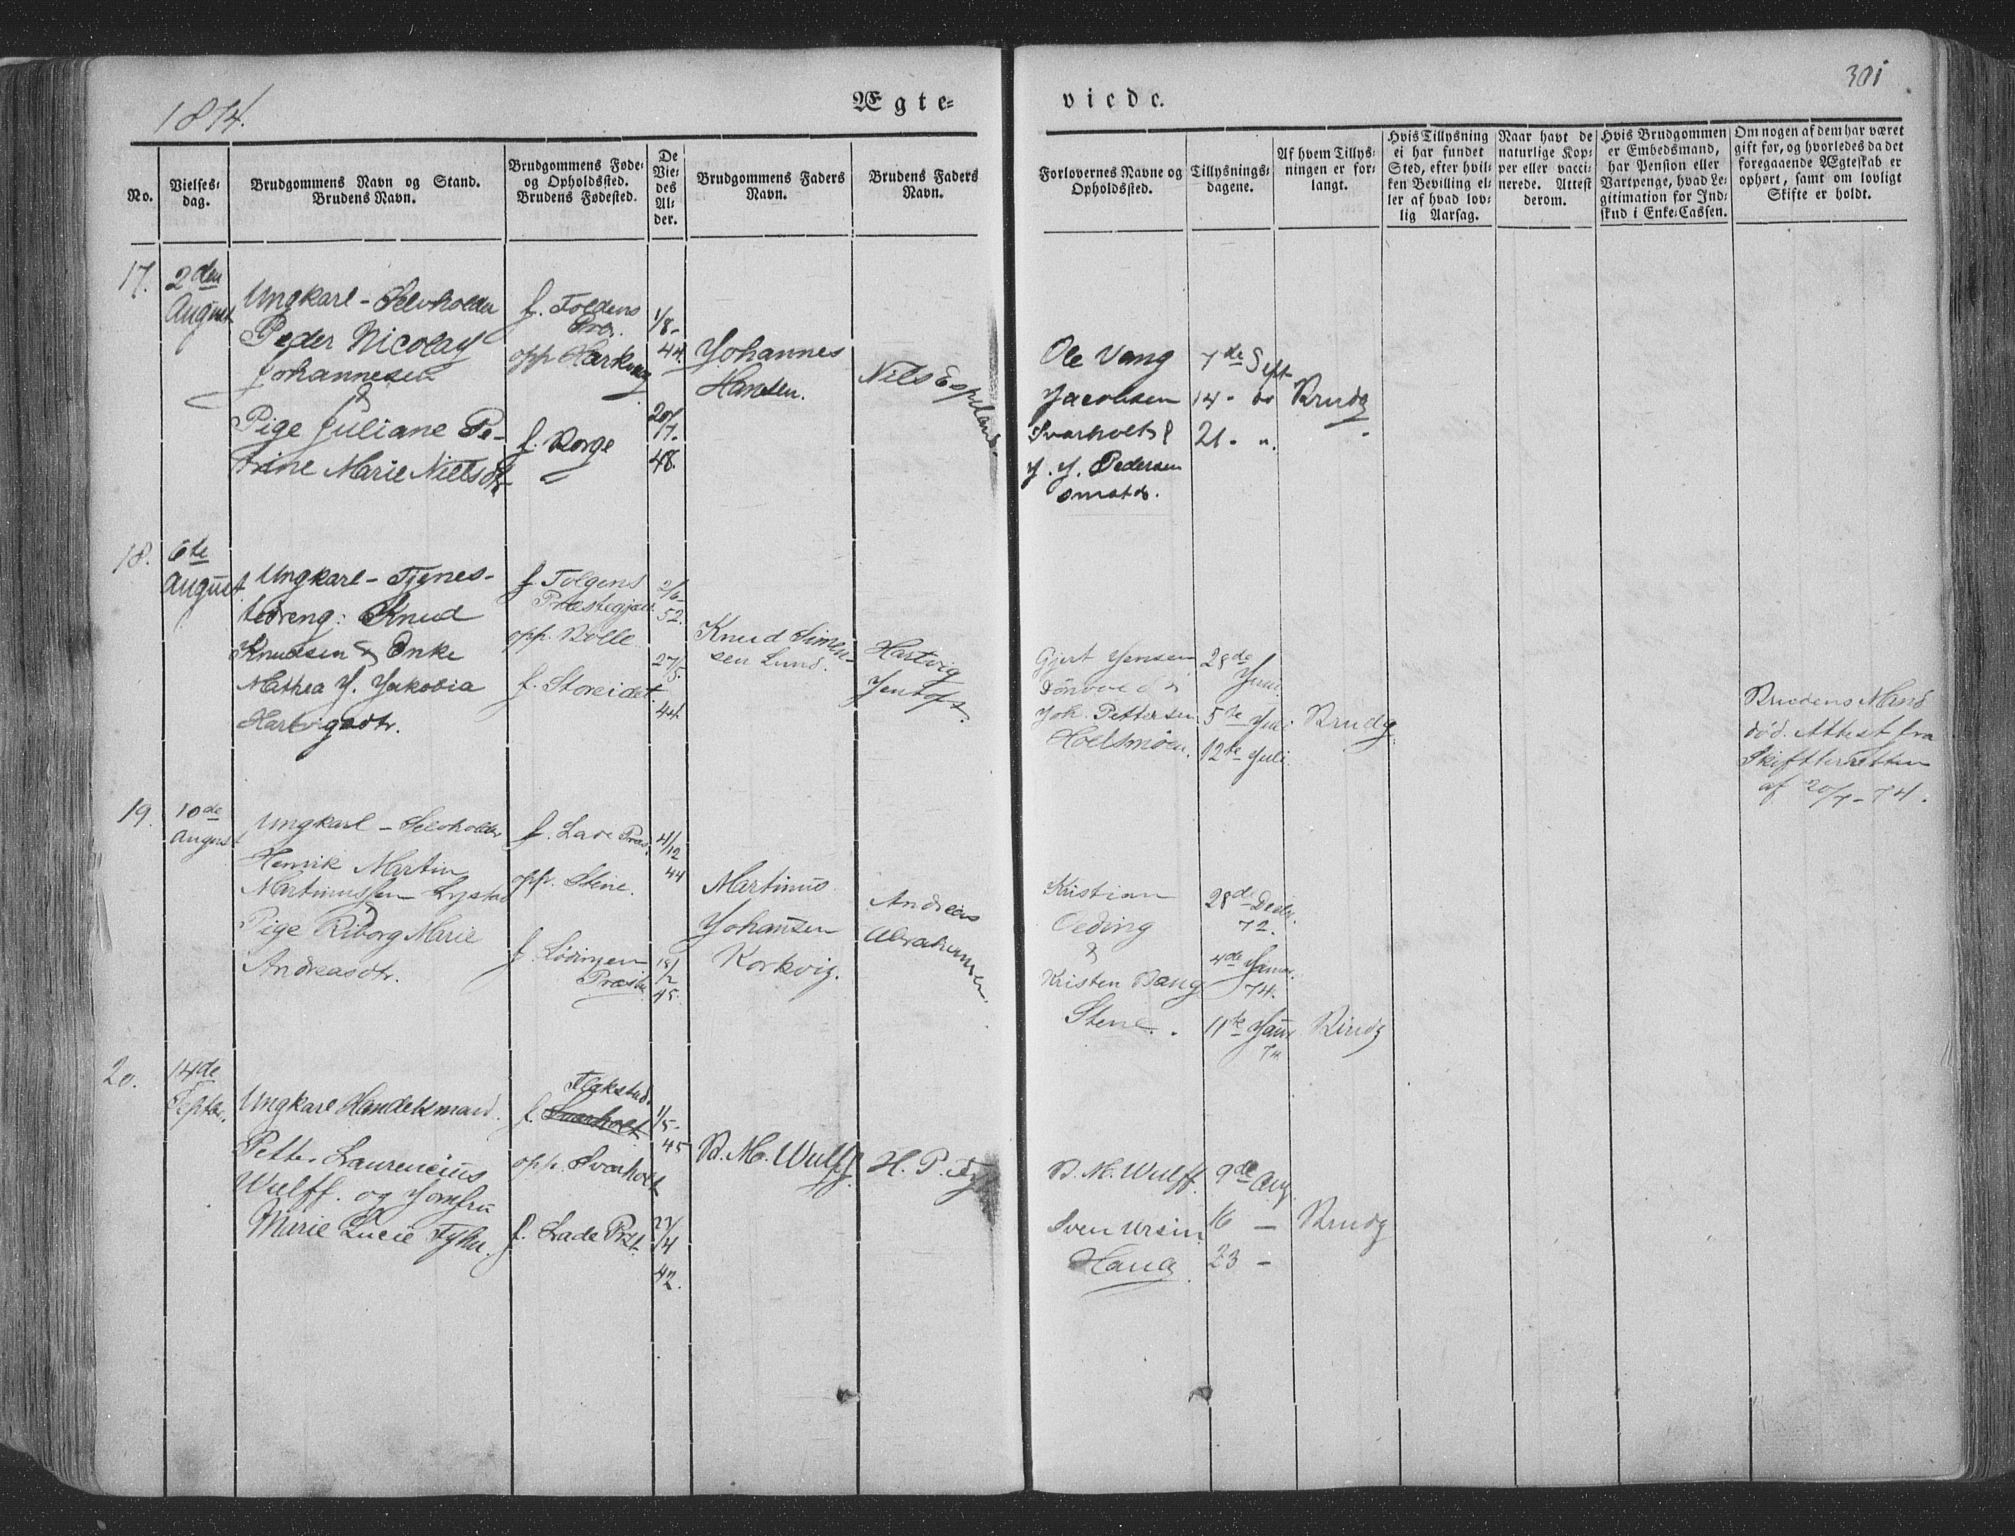 1874.
Ægte-
viede.
301
No.
Vielses-
dag.
Brudgommens Navn og Stand.
Brudens Navn.
Brudgommens Føde-
og Opholdssted.
Brudens Fødested.
De
Vie-
des
Al-
der.
Brudgommens Faders
Navn.
Brudens Faders
Navn.
Forlovernes Navne og
Opholdssted.
Tillysnings-
dagene.
Af hvem Tillys-
ningen er for-
langt.
Hvis Tillysning
ei har fundet
Sted, efter hvil-
ken Bevilling el-
ler af hvad lov-
lig Aarsag.
Naar havt de
naturlige Kop-
per eller vacci-
nerede. Attest
derom.
Hvis Brudgommen
er Embedsmand,
har Pension eller
Vartpenge, hvad Le-
gitimation for Ind-
skud i Enke-Cassen.
Om nogen af dem har været
gift før, og hvorledes da det
foregaaende Ægteskab er
ophørt, samt om lovligt
Skifte er holdt.
17.
2den
August
Ungkarl - Selvholder
Peder Nicolay
Johannesen
&
Pige Juliane Pe-
trine Marie Nielsdtr
f. Foldens
Præ.
opp. Markvig
f. Borge
1/8-
44.
20/
7.
48.
Johannes
Hansen.
Nils Espeland
Ole Vang
Jacobsen
Svarholt &
J. J. Pedersen
7de Sept
14 - do
21 - "
Brudg
18.
6te
August
Ungkarl - Tjenes-
tedreng: Knud
Knudsen & Enke
Mathea J. Jakobia
Hartvigsdtr.
f. Tolgens
Præstegjæld
opp. Bolle
f. Storeidet
2/6-
52.
27/5.
44.
Knud Simen-
sen Lund.
Hartvig
Jentoft.
Gjert Jensen
Joh. Pettersen
Holsmoen.
28de
Juni.
5te Juli
12te Juli.
Brudg.
Brudens Mand
død. Attest fra
Skifteretten
af 20/7 - 74.
19.
10de
August
Ungkarl - Selvholder
Henrik Martin
Martinussen Lystad
&
Pige Riborg Marie
Andreasdtr.
f. Lade Præs.
opp. Stene.
f. Lødingen
Præste
21/12
44
18/
2
45.
Martinus
Johansen
Korkvig.
Andreas
Abrahamsen.
Kristian
Oeding
&
Kristen Bang
Stene.
28de Decbr.
72.
4de Januar
74.
11te Janr
74
Brudg
20.
14de
Septbr.
Ungkarl Handelsmand.
Petter Laurencius
Wulff. og Jomfru
Marie Lucie Tyhu.
Flakstad.
f. Svarholt
opp. Svarholt
f. Lade Præt.
1/5-
45
23/
4
42.
B. M. Wulff.
H. P. Ty
B. M. Wulff.
Sven Ursin
Haug
9de Aug.
16 -
23 -
Brudg